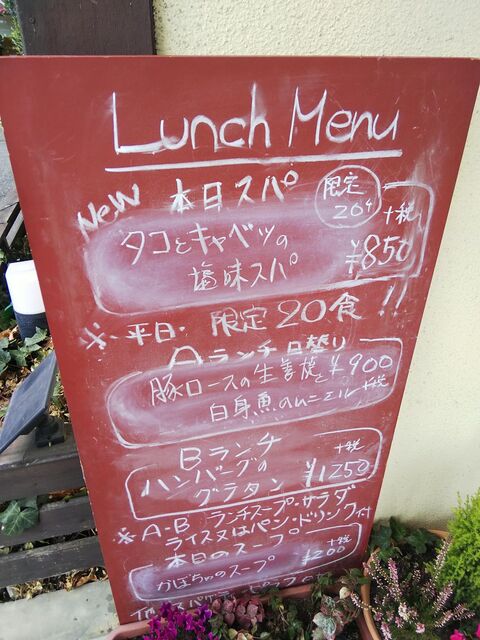 Lunch Menu
New 本日スパ
限定
20食
タコとキャベツの
塩味スパ
+税
¥850
※・平日・限定20食!!
Aランチ日替り
豚ロースの生姜焼と
白身魚のムニエル
¥900
+税
Bランチ
ハンバーグの
グラタン
+税
¥1250
※A-B ランチスープ・サラダ
ライス又はパン・ドリンク付
本日のスープ
かぼちゃのスープ
+税
¥200